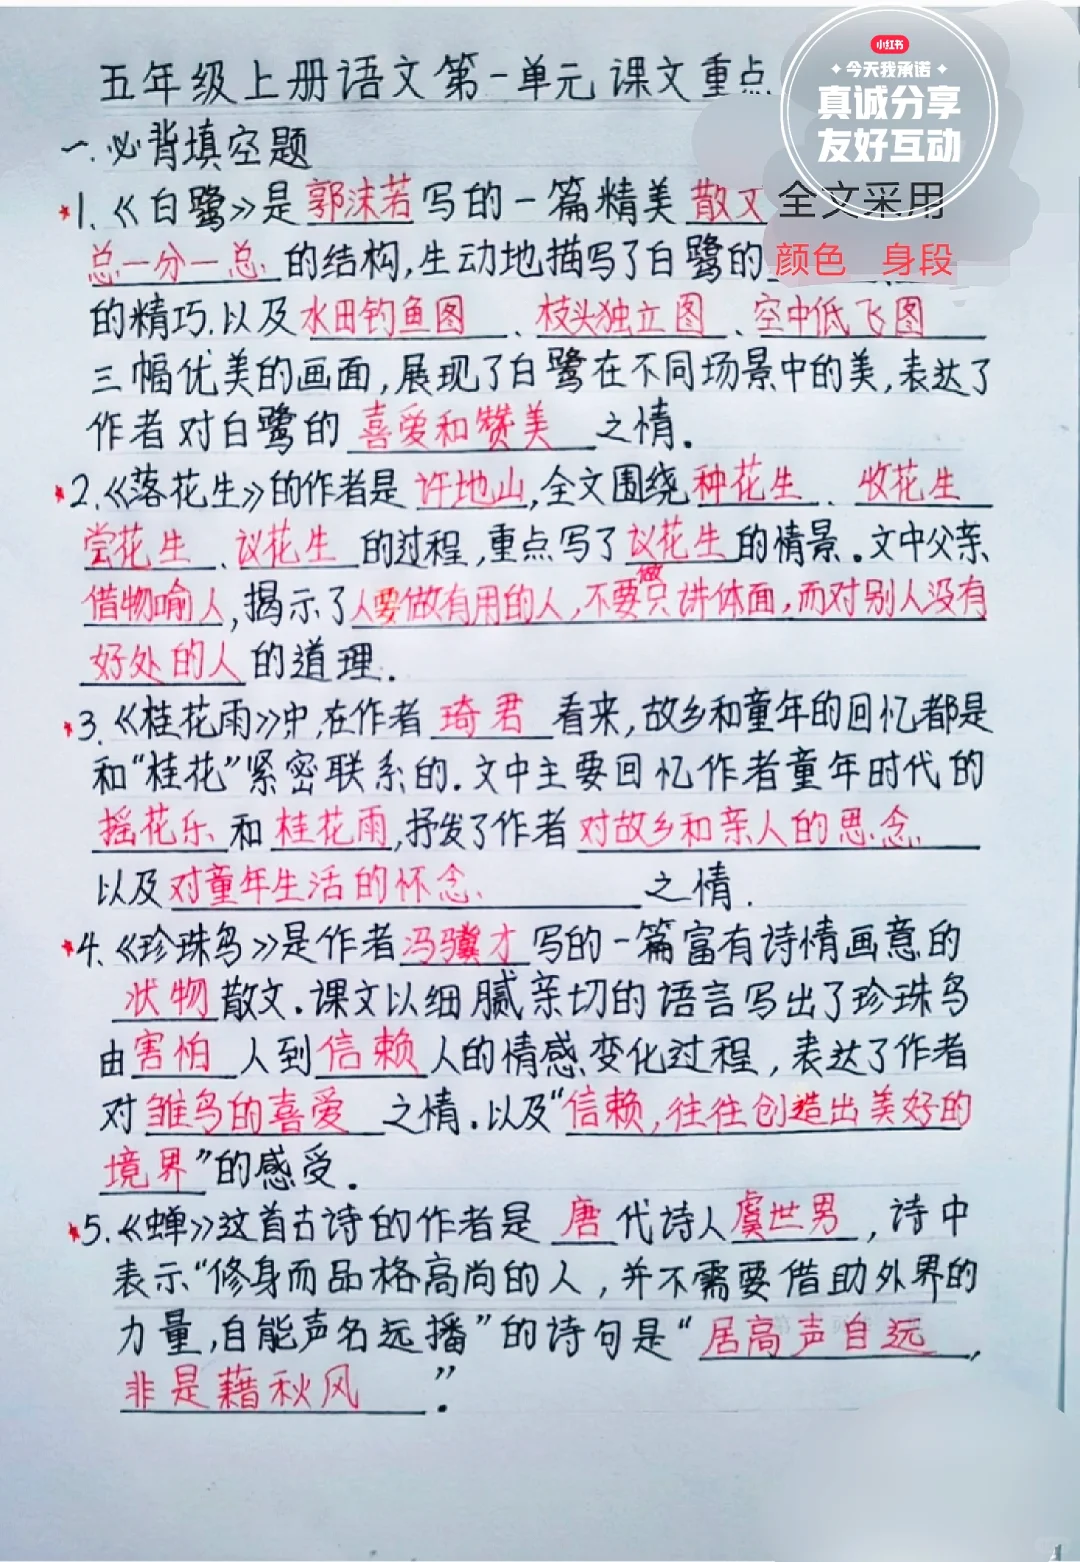 小红书
今天我承诺
真诚分享
友好互动
五年级上册语文第一单元课文重点
一.必背填空题
1.《白鹭》是郭沫若写的一篇精美散文 全文采用
总一分一总的结构,生动地描写了白鹭的颜色 身段
的精巧.以及水田钓鱼图、枝头独立图、空中低飞图
三幅优美的画面,展现了白鹭在不同场景中的美,表达了
作者对白鹭的喜爱和赞美之情.
2.《落花生》的作者是许地山,全文围绕种花生、收花生
尝花生、议花生的过程,重点写了议花生的情景.文中父亲
借物喻人,揭示了人要做有用的人,不要做只讲体面,而对别人没有
好处的人的道理.
3.《桂花雨》中,在作者琦君看来,故乡和童年的回忆都是
和“桂花”紧密联系的.文中主要回忆作者童年时代的
摇花乐和桂花雨,抒发了作者对故乡和亲人的思念
以及对童年生活的怀念、之情.
4.《珍珠鸟》是作者冯骥才写的一篇富有诗情画意的
状物散文.课文以细腻亲切的语言写出了珍珠鸟
由害怕人到信赖人的情感变化过程,表达了作者
对雏鸟的喜爱之情.以及“信赖,往往创造出美好的
境界”的感受.
5.《蝉》这首古诗的作者是唐代诗人虞世男,诗中
表示“修身而品格高尚的人,并不需要借助外界的
力量,自能声名远播”的诗句是“居高声自远,
非是藉秋风”.